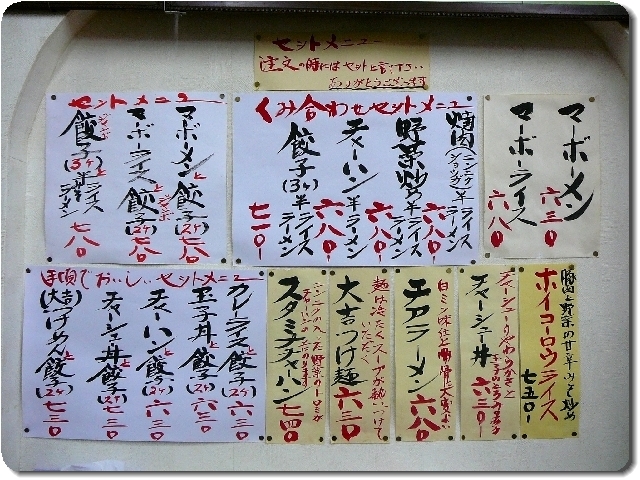 セットメニュー
注文の時にはセットと言って下さい
ありがとうございます
マーボーメン 六三〇
マーボーライス 六八〇
くみ合わせセットメニュー
焼肉 ニンニク ショウガ 半ライス ラーメン 六八〇
野菜炒め 半ライス ラーメン 六八〇
チャーハン 半ラーメン 六八〇
餃子(3ケ)半ライス ラーメン 七一〇
セットメニュー
マーボーメンと餃子(2ケ) 七八〇
マーボーライスと餃子(2ケ) 七八〇
餃子(3ケ)半ライス ラーメン 七八〇
豚肉と野菜の甘辛みそ炒め
ホイコーロウライス
七五〇
チャーシュー丼
六三〇
エアラーメン
六八〇
麺は冷たくスープが熱いつけていただく
大吉つけ麺
六三〇
ニンニクの入った野菜のトロミが
スタミナチャーハン
七四〇
手頃でおいしいセットメニュー
カレーライスと餃子(2ケ) 六三〇
玉子丼と餃子(2ケ) 六三〇
チャーハンと餃子(2ケ) 六三〇
チャーシュー丼と餃子(2ケ) 七三〇
(大吉)つけめんと餃子(2ケ) 七三〇